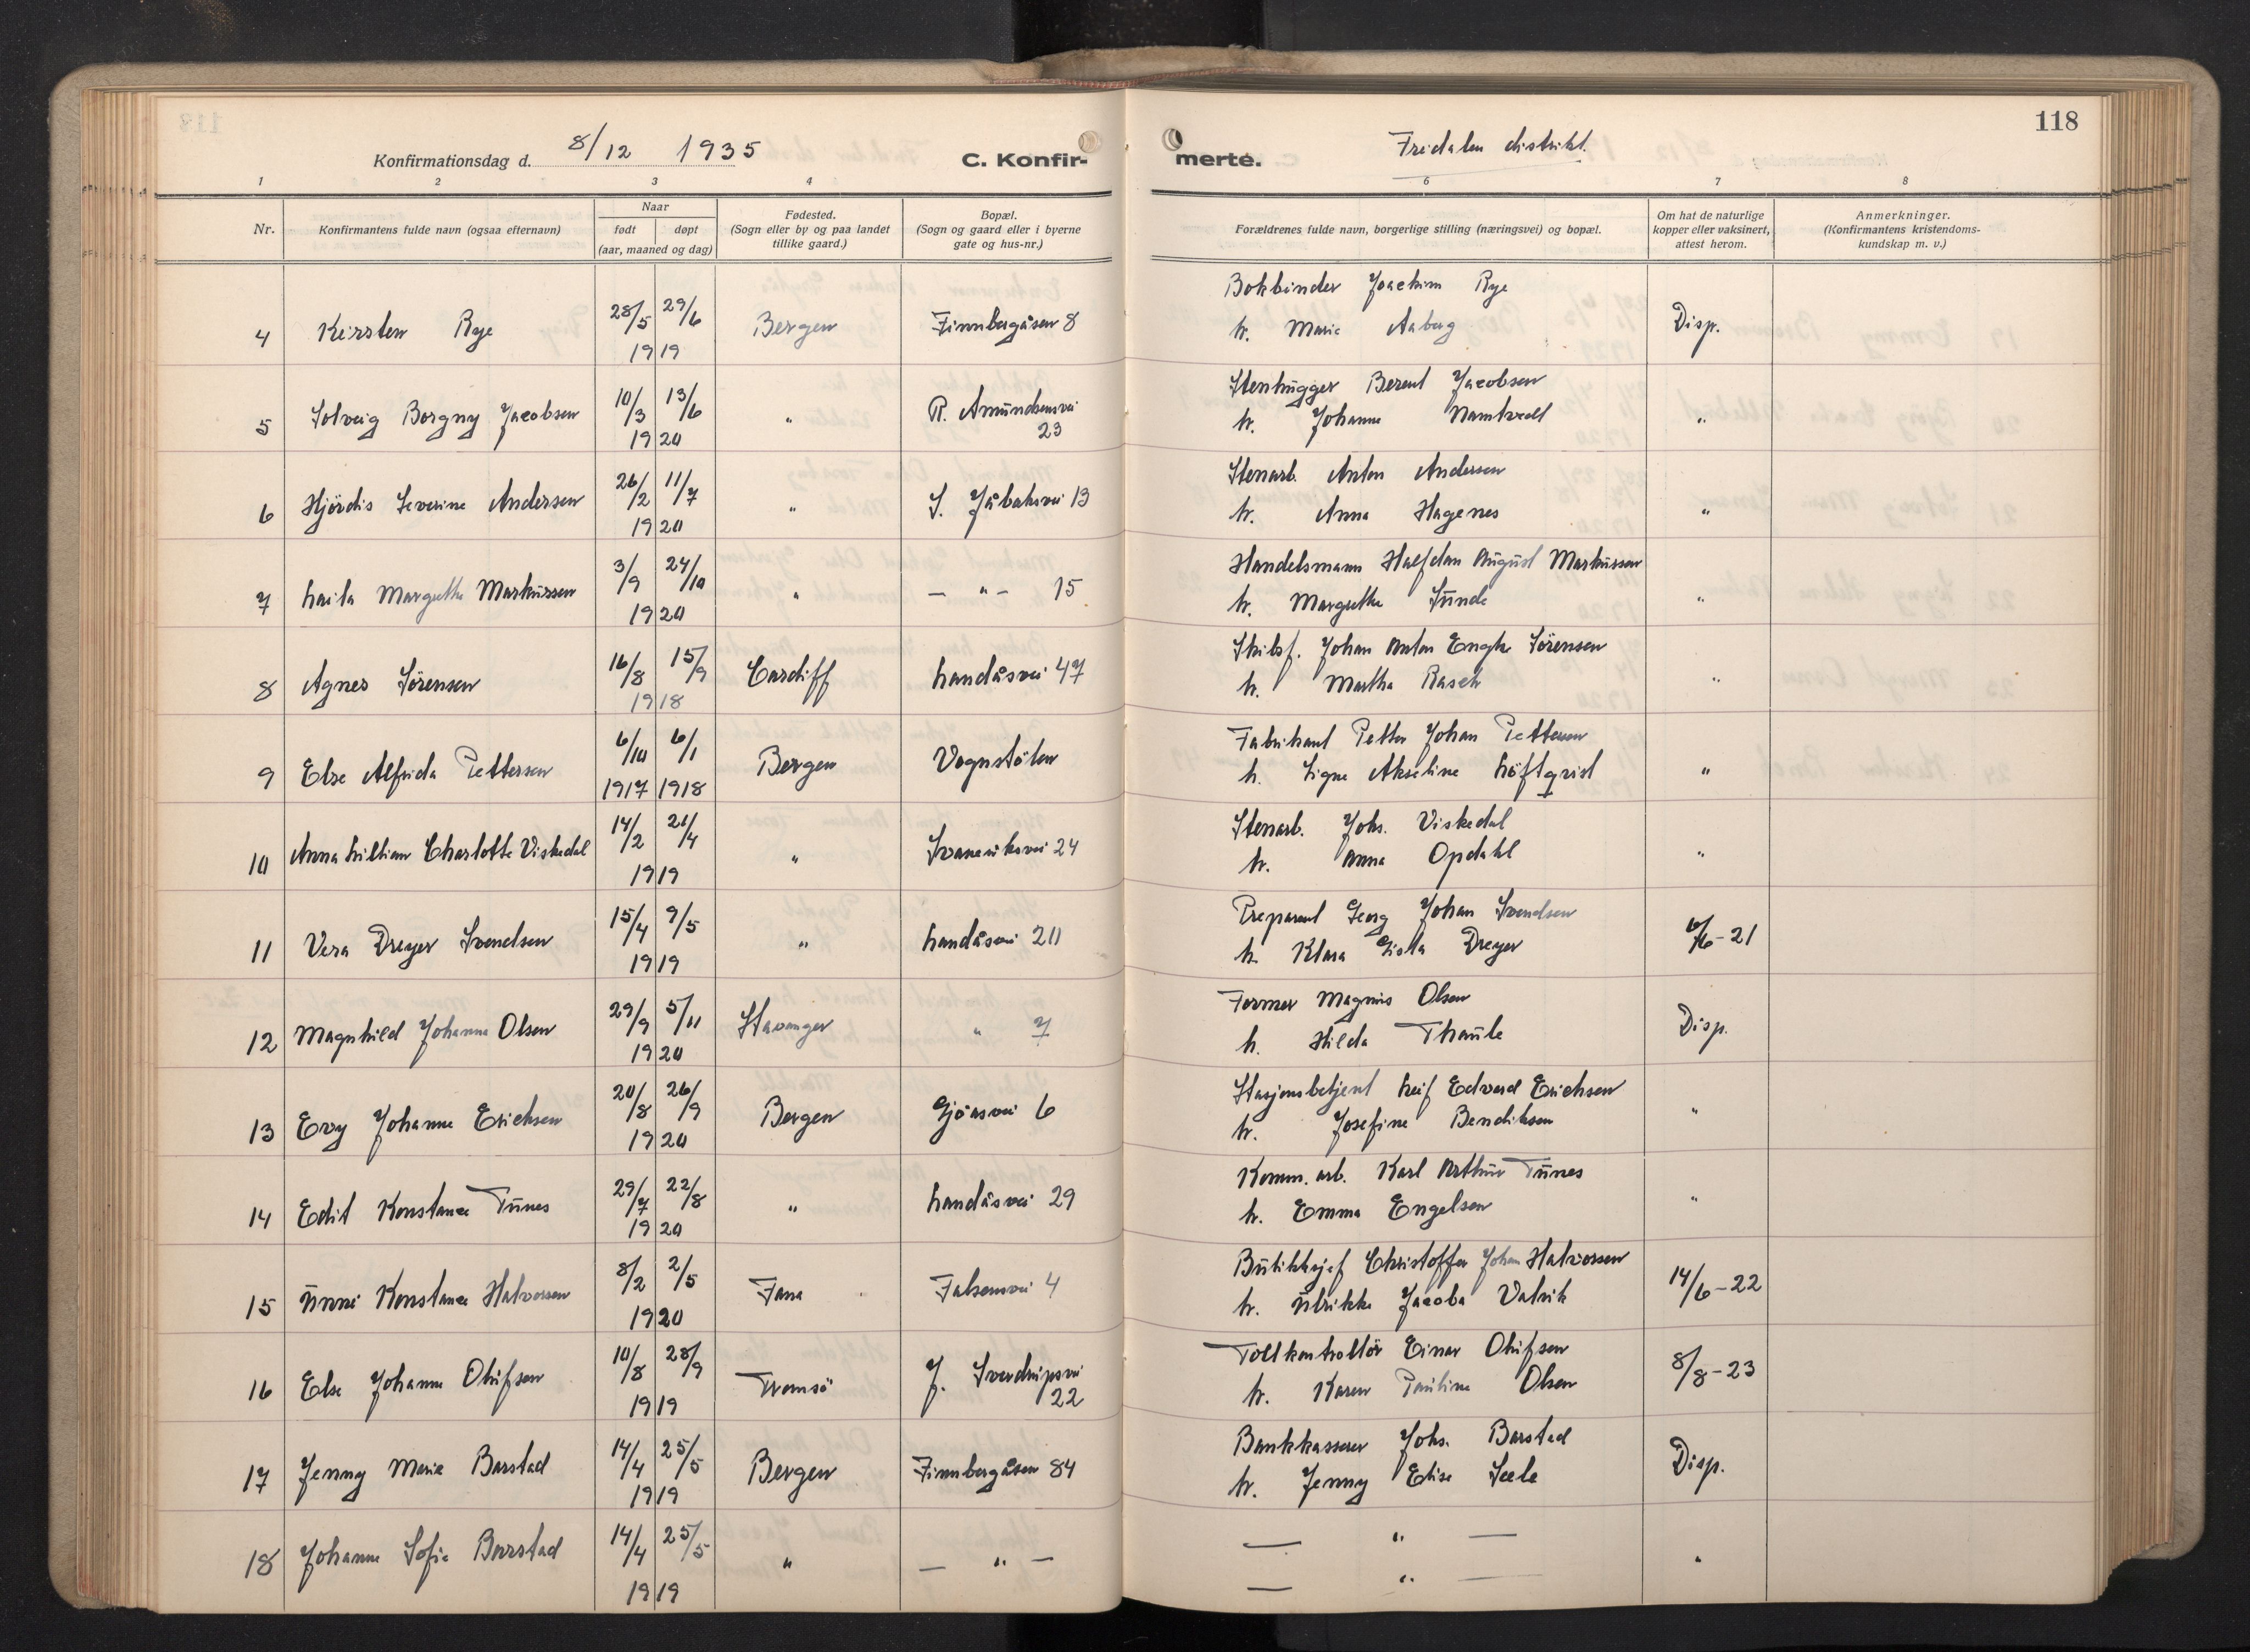 118
Konfirmationsdag d. 8/12 1935 C. Konfir- merte. Fridalen distrikt.
1 2 3 4 6 7 8
Nr. Konfirmantens fulde navn (ogsaa efternavn) Naar født døpt (aar, maaned og dag)
Fødested. (Sogn eller by og paa landet tillike gaard.)
Bopæl. (Sogn og gaard eller i byerne gate og hus-nr.)
Forældrenes fulde navn, borgerlige stilling (næringsvei) og bopæl.
Om hat de naturlige kopper eller vaksinert, attest herom.
Anmerkninger. (Konfirmantens kristendoms- kundskap m. v.)
4 Kirsten Rye 28/5 29/6 1919 Bergen Finnbergåsen 8 Bokbinder Joachim Rye Disp.
h. Marie Aaberg
5 Solveig Borgny Jacobsen 10/3 13/6 1920 " R. Amundsensvei 23 Stenhugger Berent Jacobsen "
h. Johanne Namtvedt
6 Hjördis Severine Andersen 26/2 11/7 1920 " S. Jåbaksvei 13 Stenarb. Anton Andersen "
h. Anna Hagenes
7 Laila Margrethe Markussen 3/9 24/10 1920 " — " — 15 Handelsmann Halfdan August Markussen "
h. Margrethe Sunde
8 Agnes Sörensen 16/8 15/9 1918 Cardiff Landåsvei 47 Skibsf. Johan Anton Sörensen "
h. Martha Rasch
9 Else Alfrida Pettersen 6/10 1917 6/1 1918 Bergen Vognstölen Fabrikant Petter Johan Pettersen "
h. Signe Akseline Löftqvist
10 Anna Lillian Charlotte Viskedal 14/2 21/4 1919 " 24 Stenarb. Johs. Viskedal "
h. Anna Opdahl
11 Vera Dreyer Svendsen 15/4 9/5 1919 " Landåsvei 20 Preparant Georg Johan Svendsen -21
h. Klara Gisla Dreyer
12 Magnhild Johanne Olsen 29/9 5/11 1920 Stavanger " 7 Former Magnus Olsen Disp.
h. Hilda Thaule
13 Evy Johanne Erichsen 20/8 26/9 1920 Bergen Gjöasvei 6 Stasjonsbetjent Leif Edvard Erichsen "
h. Josefine Bendiksen
14 Edit Konstance Tunes 29/7 22/8 1920 " Landåsvei 29 Komm. arb. Karl Arthur Tunes "
h. Emma Engelsen
15 Unni Konstance Halvorsen 8/2 2/5 1920 Fana Falsensvei 4 Butikksjef Christoffer Johan Halvorsen 14/6-22
h. Ulrikke Jacoba Valvik
16 Else Johanne Olufsen 10/8 28/9 1919 Tromsö J. Sverdrupsvei 22 Tollkontrollör Einar Olufsen 8/8-23
h. Karen Pauline Olsen
17 Jenny Marie Barstad 14/4 25/5 1919 Bergen Finnbergåsen 84 Bankkasserer Johs. Barstad Disp.
h. Jenny Elise Seele
18 Johanne Sofie Barstad 14/4 25/5 1919 " — " — — " — "
— " —